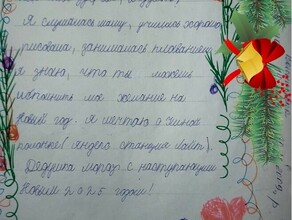 Я слушалась маму, училась хорошо,
рисовала, занималась плаванием
я знаю, что ты можешь
исполнить мое желание на
Новый год. Я мечтаю о умной
колонке (яндекс станция лайт).
Дедушка Мороз, с наступающим
Новым 2025 годом!